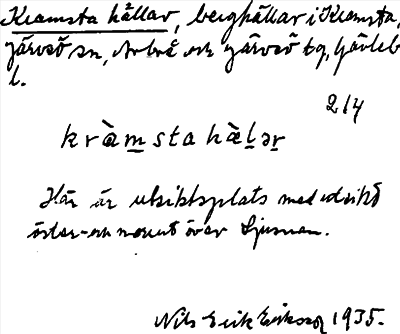 Kramsta hällar, berghällar i Kramsta,
Järvsö sn, Arbrå och Järvsö tg, Gävleb
l.
2/4
kràmstahæ̀lər
Här är utsiktsplats med utsikt
öster- och norrut över Ljusnan.
Nils Erik Eriksson 1935.